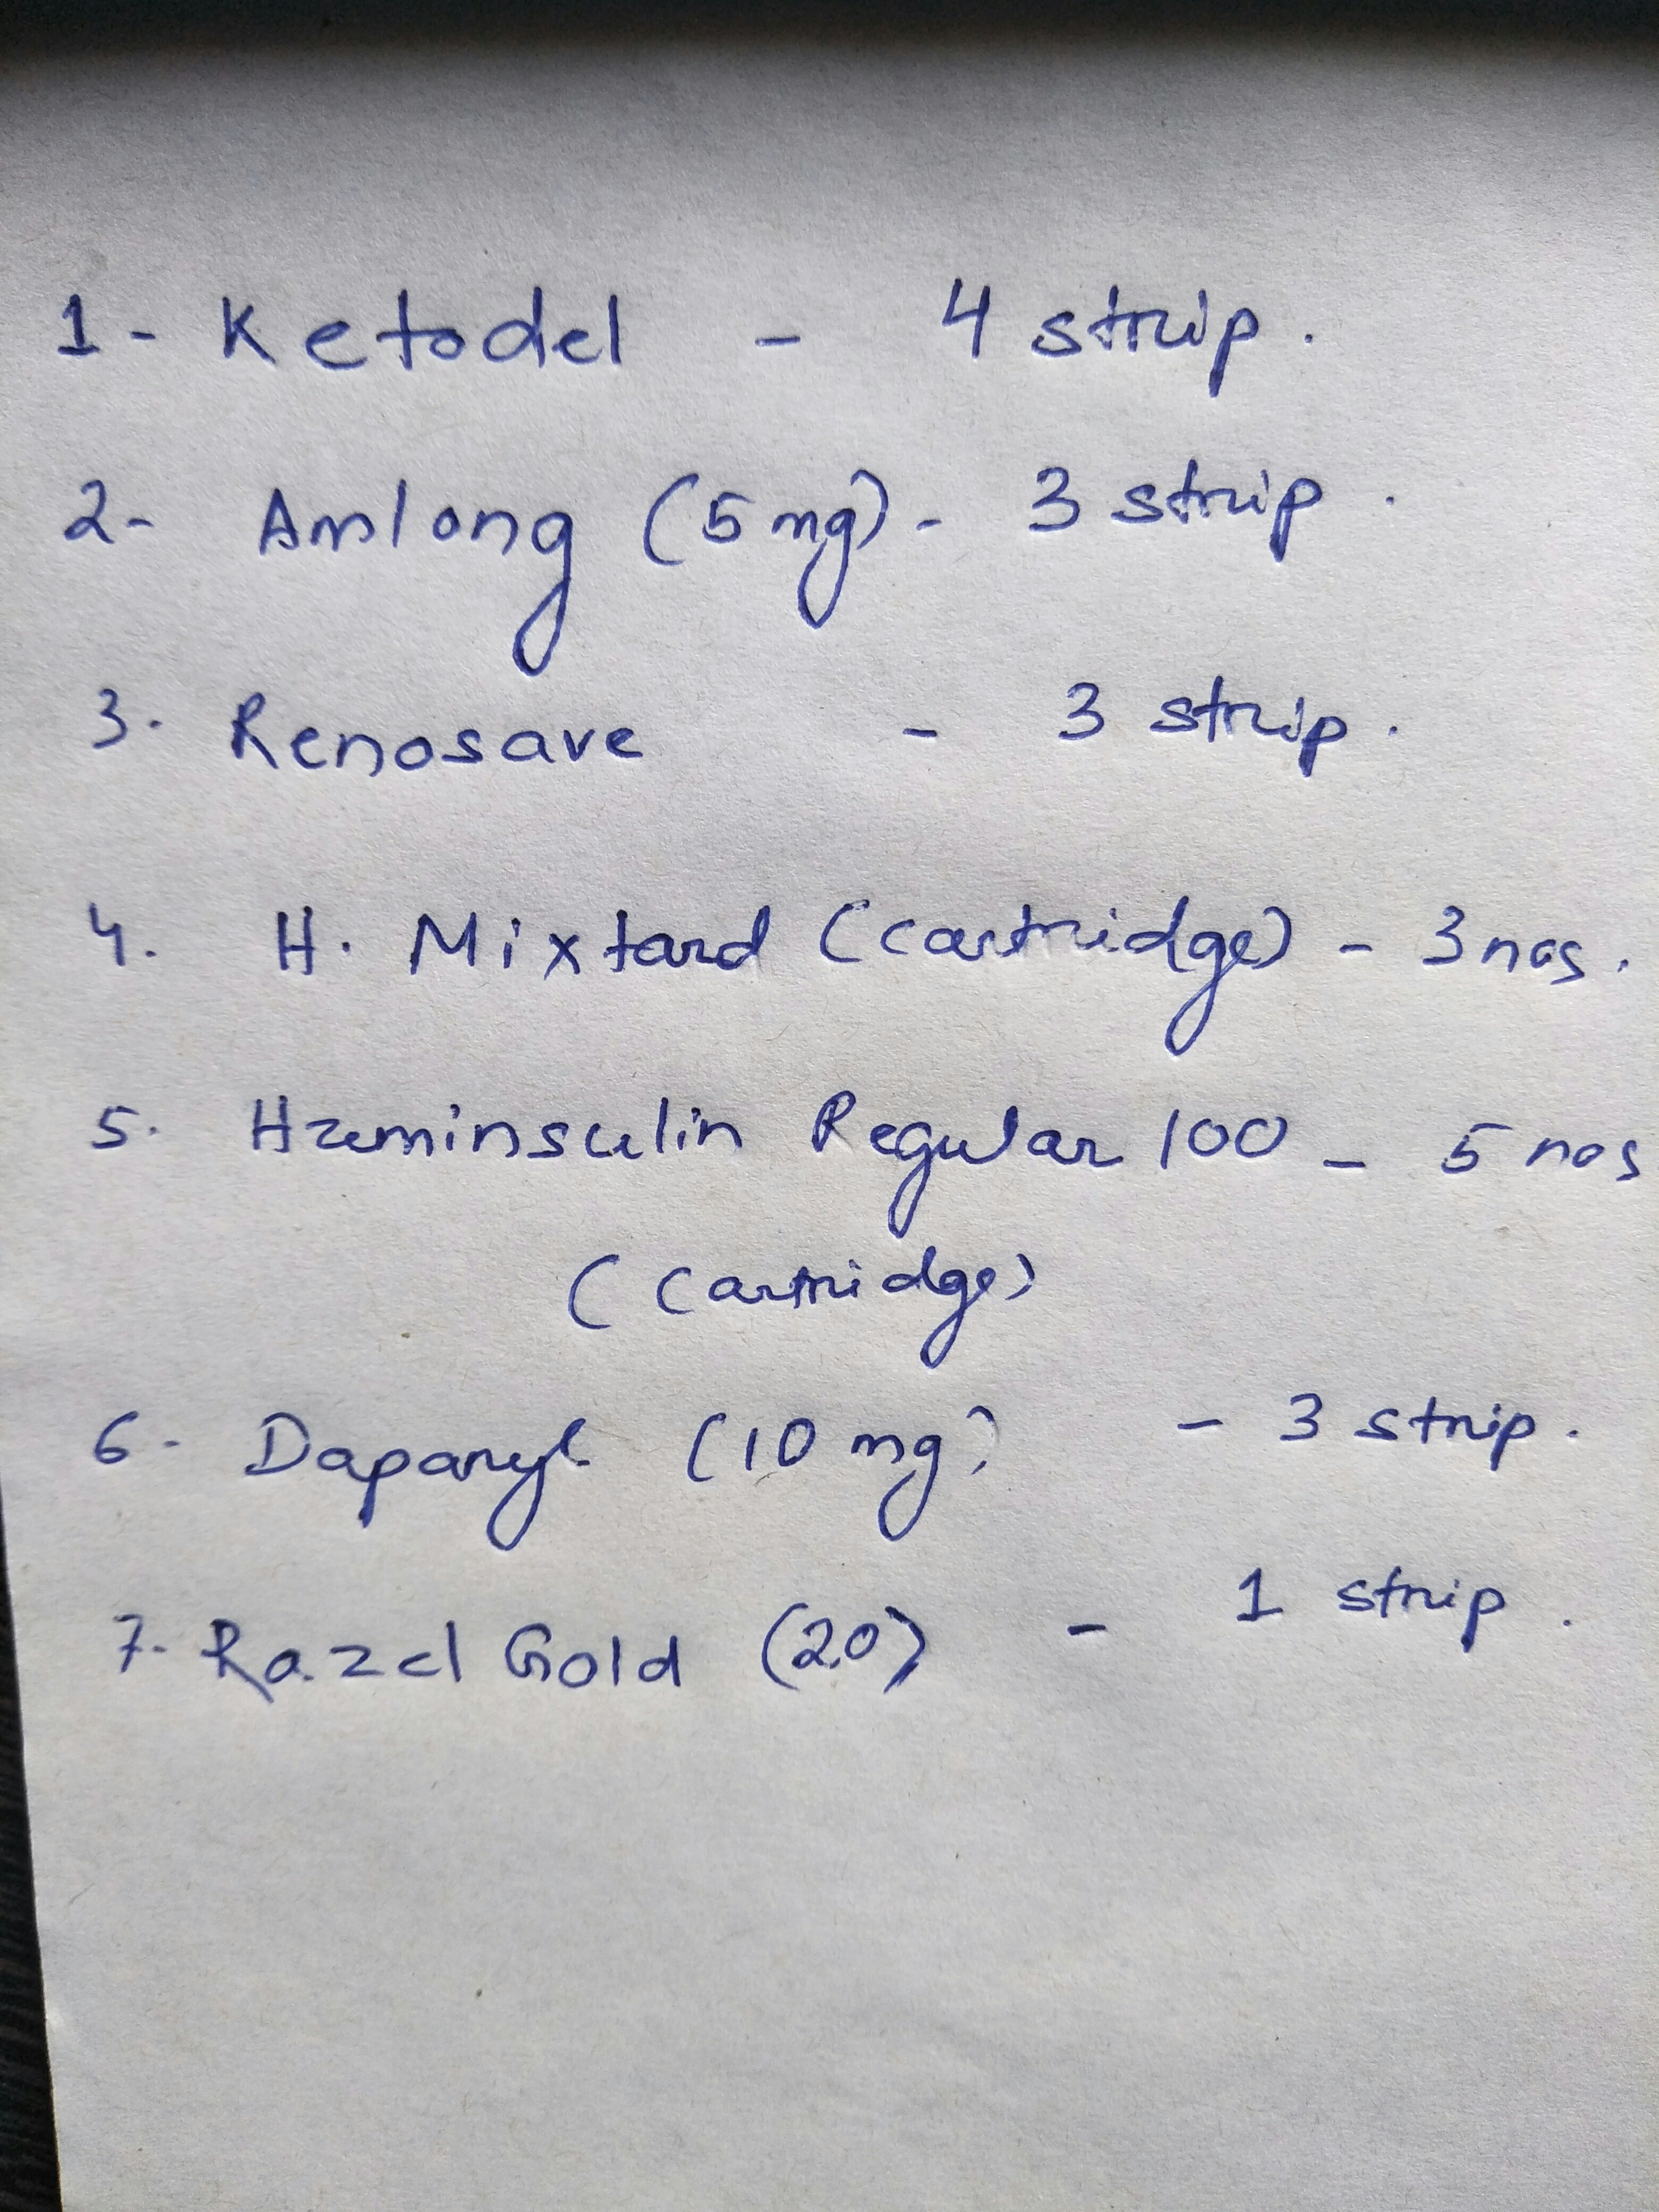 1- Ketodel - 4 strip.
2- Amlong (5 mg) - 3 strip.
3. Renosave - 3 strip.
4. H. Mixtard (Cartridge) - 3 nos.
5. Huminsulin Regular 100 - 5 nos
(Cartridge)
6- Daparyl (10 mg) - 3 strip.
7- Razel Gold (20) - 1 strip.